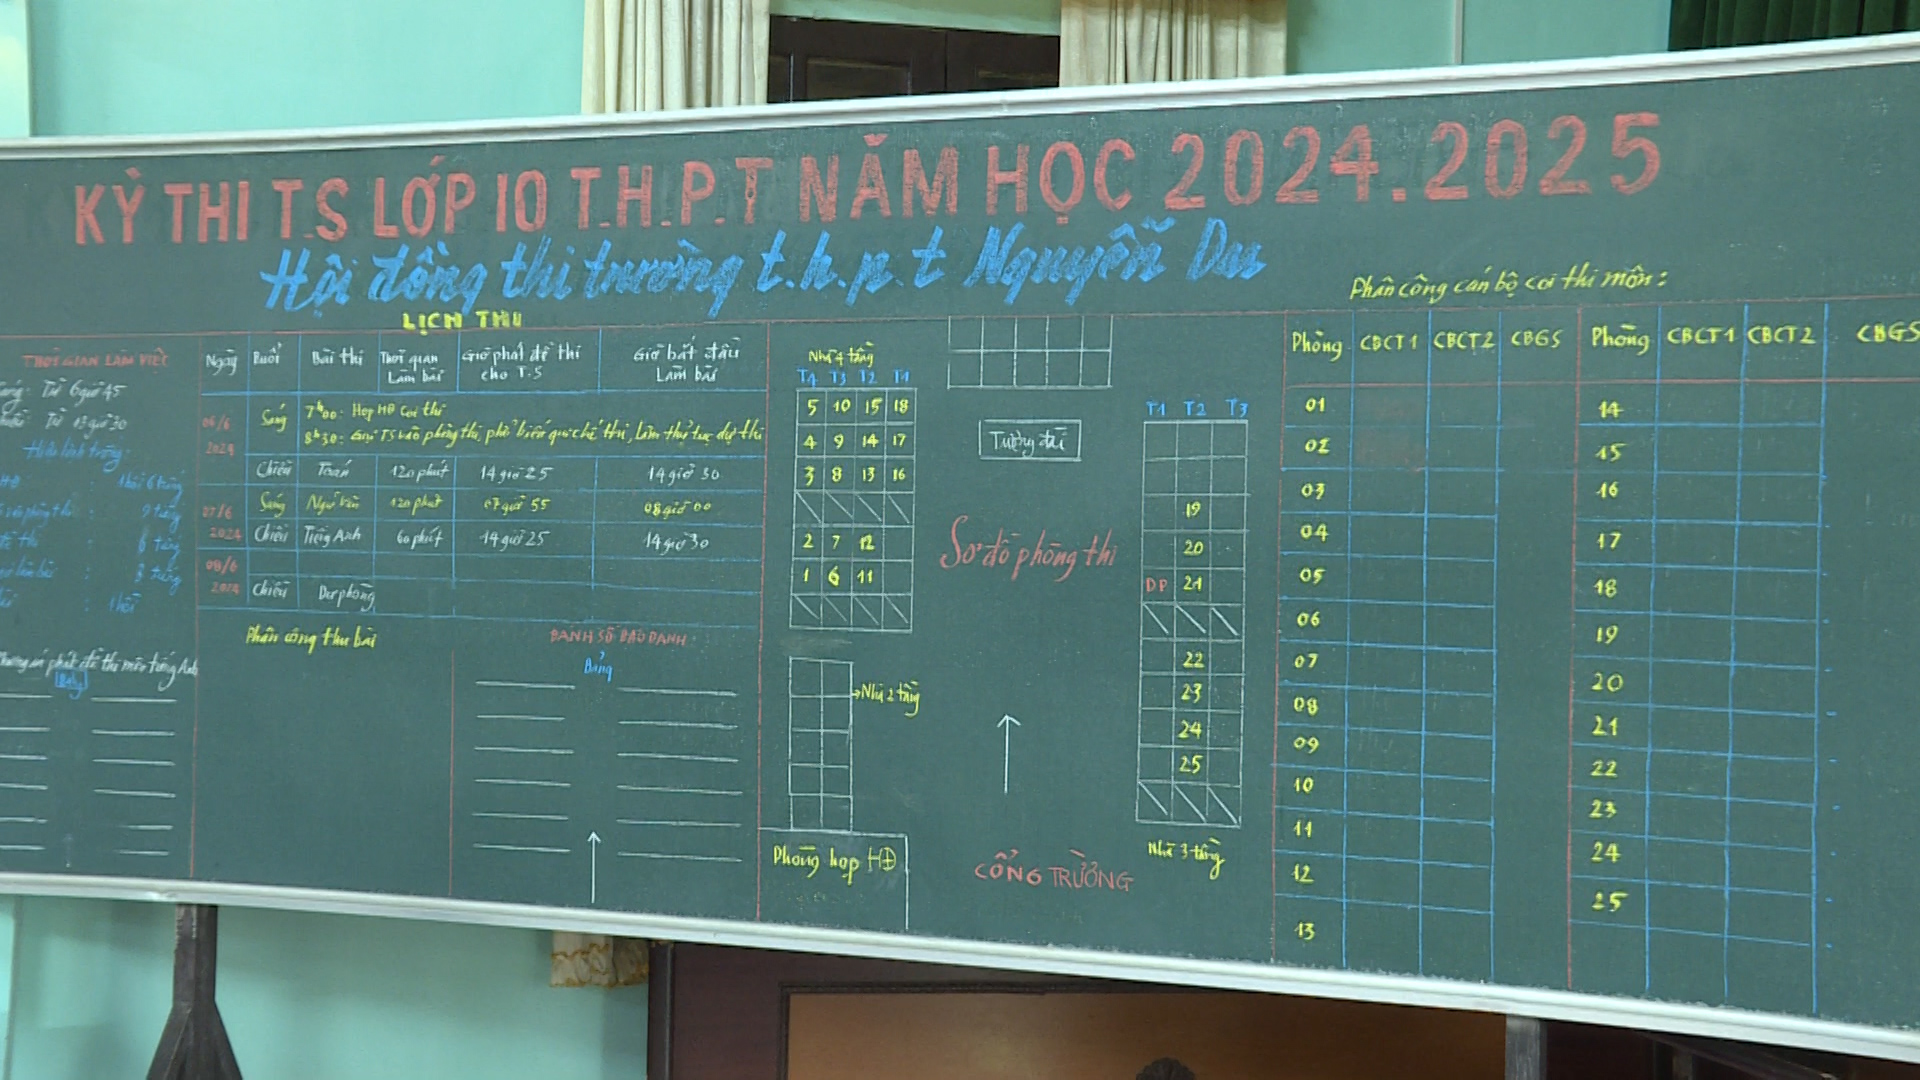 KỲ THI T.S LỚP 10 T.H.P.T NĂM HỌC 2024.2025
Hội đồng thi trường t.h.p.t Nguyễn Du
LỊCH THI
THỜI GIAN LÀM VIỆC
Từ 6 giờ 45
Từ 13 giờ 30
Hiệu lệnh trống:
9 tiếng
Ngày Buổi Bài thi Thời gian Làm bài Giờ phát đề thi cho T.S Giờ bắt đầu Làm bài
06/6 2024 Sáng 7h00: Họp HĐ coi thi
8h30: Gọi TS vào phòng thi, phổ biến qui chế thi, Làm thủ tục dự thi
Chiều Toán 120 phút 14 giờ 25 14 giờ 30
07/6 2024 Sáng Ngữ văn 120 phút 07 giờ 55 08 giờ 00
Chiều Tiếng Anh 60 phút 14 giờ 25 14 giờ 30
08/6 2024
Chiều Dự phòng
phát đề thi môn tiếng Anh
Phân công thu bài
ĐÁNH SỐ BÁO DANH
Bảng
Nhà 4 tầng
T4 T3 T2 T1
5 10 15 18
4 9 14 17
3 8 13 16
2 7 12
1 6 11
Nhà 2 tầng
Phòng họp HĐ
Tượng đài
Sơ đồ phòng thi
CỔNG TRƯỜNG
T1 T2 T3
19
20
DP 21
22
23
24
25
Nhà 3 tầng
Phân công cán bộ coi thi môn:
Phòng CBCT1 CBCT2 CBGS
01
02
03
04
05
06
07
08
09
10
11
12
13
Phòng CBCT1 CBCT2 CBGS
14
15
16
17
18
19
20
21
22
23
24
25